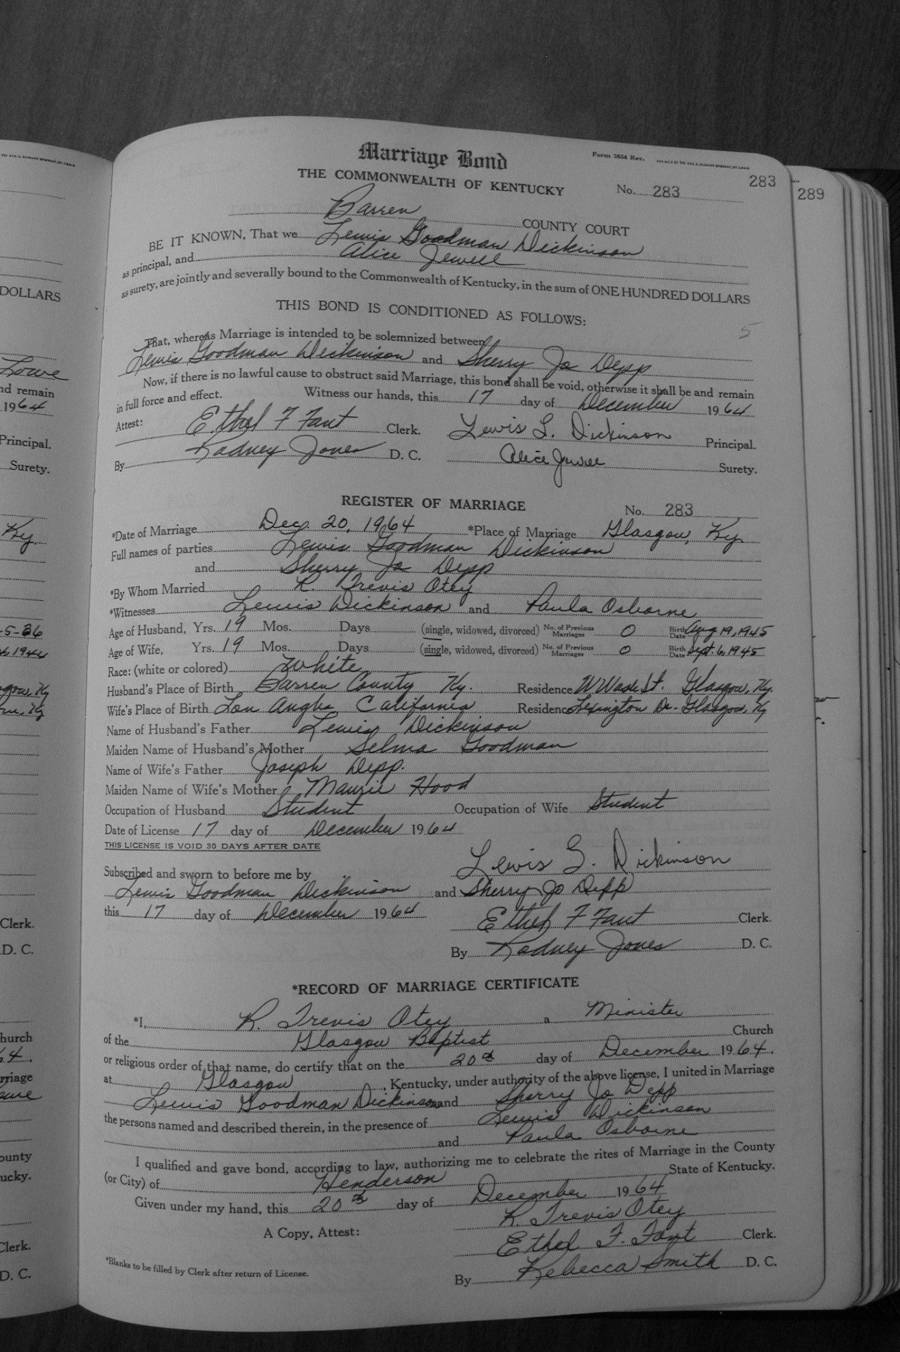 Marriage Bond
Form 2654 Rev.
283
THE COMMONWEALTH OF KENTUCKY No. 283
289
Barren COUNTY COURT
BE IT KNOWN, That we Lewis Goodman Dickinson
as principal, and Alice Jewell
as surety, are jointly and severally bound to the Commonwealth of Kentucky, in the sum of ONE HUNDRED DOLLARS
THIS BOND IS CONDITIONED AS FOLLOWS:
5
That, whereas Marriage is intended to be solemnized between
Lewis Goodman Dickinson and Sherry Jo Depp
Now, if there is no lawful cause to obstruct said Marriage, this bond shall be void, otherwise it shall be and remain
in full force and effect. Witness our hands, this 17 day of December 1964
Attest: Ethel F Fant Clerk. Lewis G. Dickinson Principal.
By Rodney Jones D. C. Alice Jewell Surety.
REGISTER OF MARRIAGE No. 283
*Date of Marriage Dec. 20, 1964 *Place of Marriage Glasgow, Ky.
Full names of parties Lewis Goodman Dickinson
and Sherry Jo Depp
*By Whom Married R. Trevis Otey
*Witnesses Lewis Dickinson and Paula Osborne
Age of Husband, Yrs. 19 Mos. Days (single, widowed, divorced) No. of Previous Marriages 0 Birth Date Aug 19, 1945
Age of Wife, Yrs. 19 Mos. Days (single, widowed, divorced) No. of Previous Marriages 0 Birth Date Sept. 6, 1945
Race: (white or colored) White
Husband's Place of Birth Barren County Ky. Residence W Wade St. Glasgow, Ky.
Wife's Place of Birth Los Angles California Residence Lexington Dr. Glasgow, Ky
Name of Husband's Father Lewis Dickinson
Maiden Name of Husband's Mother Selma Goodman
Name of Wife's Father Joseph Depp.
Maiden Name of Wife's Mother Maurie Hood
Occupation of Husband Student Occupation of Wife Student
Date of License 17 day of December 1964
THIS LICENSE IS VOID 30 DAYS AFTER DATE
Lewis G. Dickinson
Subscribed and sworn to before me by
Lewis Goodman Dickinson and Sherry Jo Depp
this 17 day of December 1964 Ethel F Fant Clerk.
By Rodney Jones D. C.
*RECORD OF MARRIAGE CERTIFICATE
*I, R. Trevis Otey a Minister
of the Glasgow Baptist Church
or religious order of that name, do certify that on the 20th day of December 1964.
at Glasgow, Kentucky, under authority of the above license, I united in Marriage
Lewis Goodman Dickinson and Sherry Jo Depp
the persons named and described therein, in the presence of Lewis Dickinson
and Paula Osborne
I qualified and gave bond, according to law, authorizing me to celebrate the rites of Marriage in the County
(or City) of Henderson State of Kentucky.
Given under my hand, this 20th day of December 1964
R. Trevis Otey
A Copy, Attest: Ethel F. Fant Clerk.
*Blanks to be filled by Clerk after return of License.
By Rebecca Smith D. C.
DOLLARS
Lowe
nd remain
1964
Principal.
Surety.
Ky
Clerk.
D. C.
hurch
64.
rriage
ounty
ucky.
Clerk.
D. C.